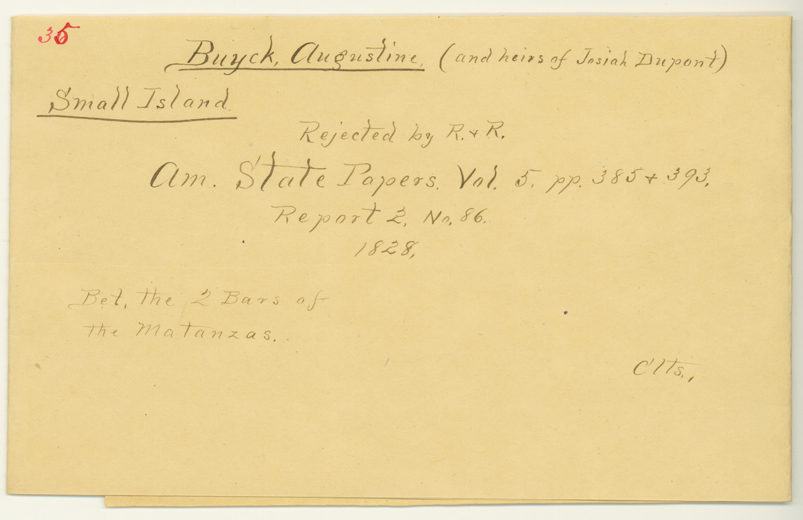 35
Buyck, Augustine. (and heirs of Josiah Dupont)
Small Island.
Rejected by R. & R.
Am. State Papers. Vol. 5. pp. 385 & 393.
Report 2, No. 86.
1828.
Bet. the 2 Bars of
the Matanzas.
Clts.,